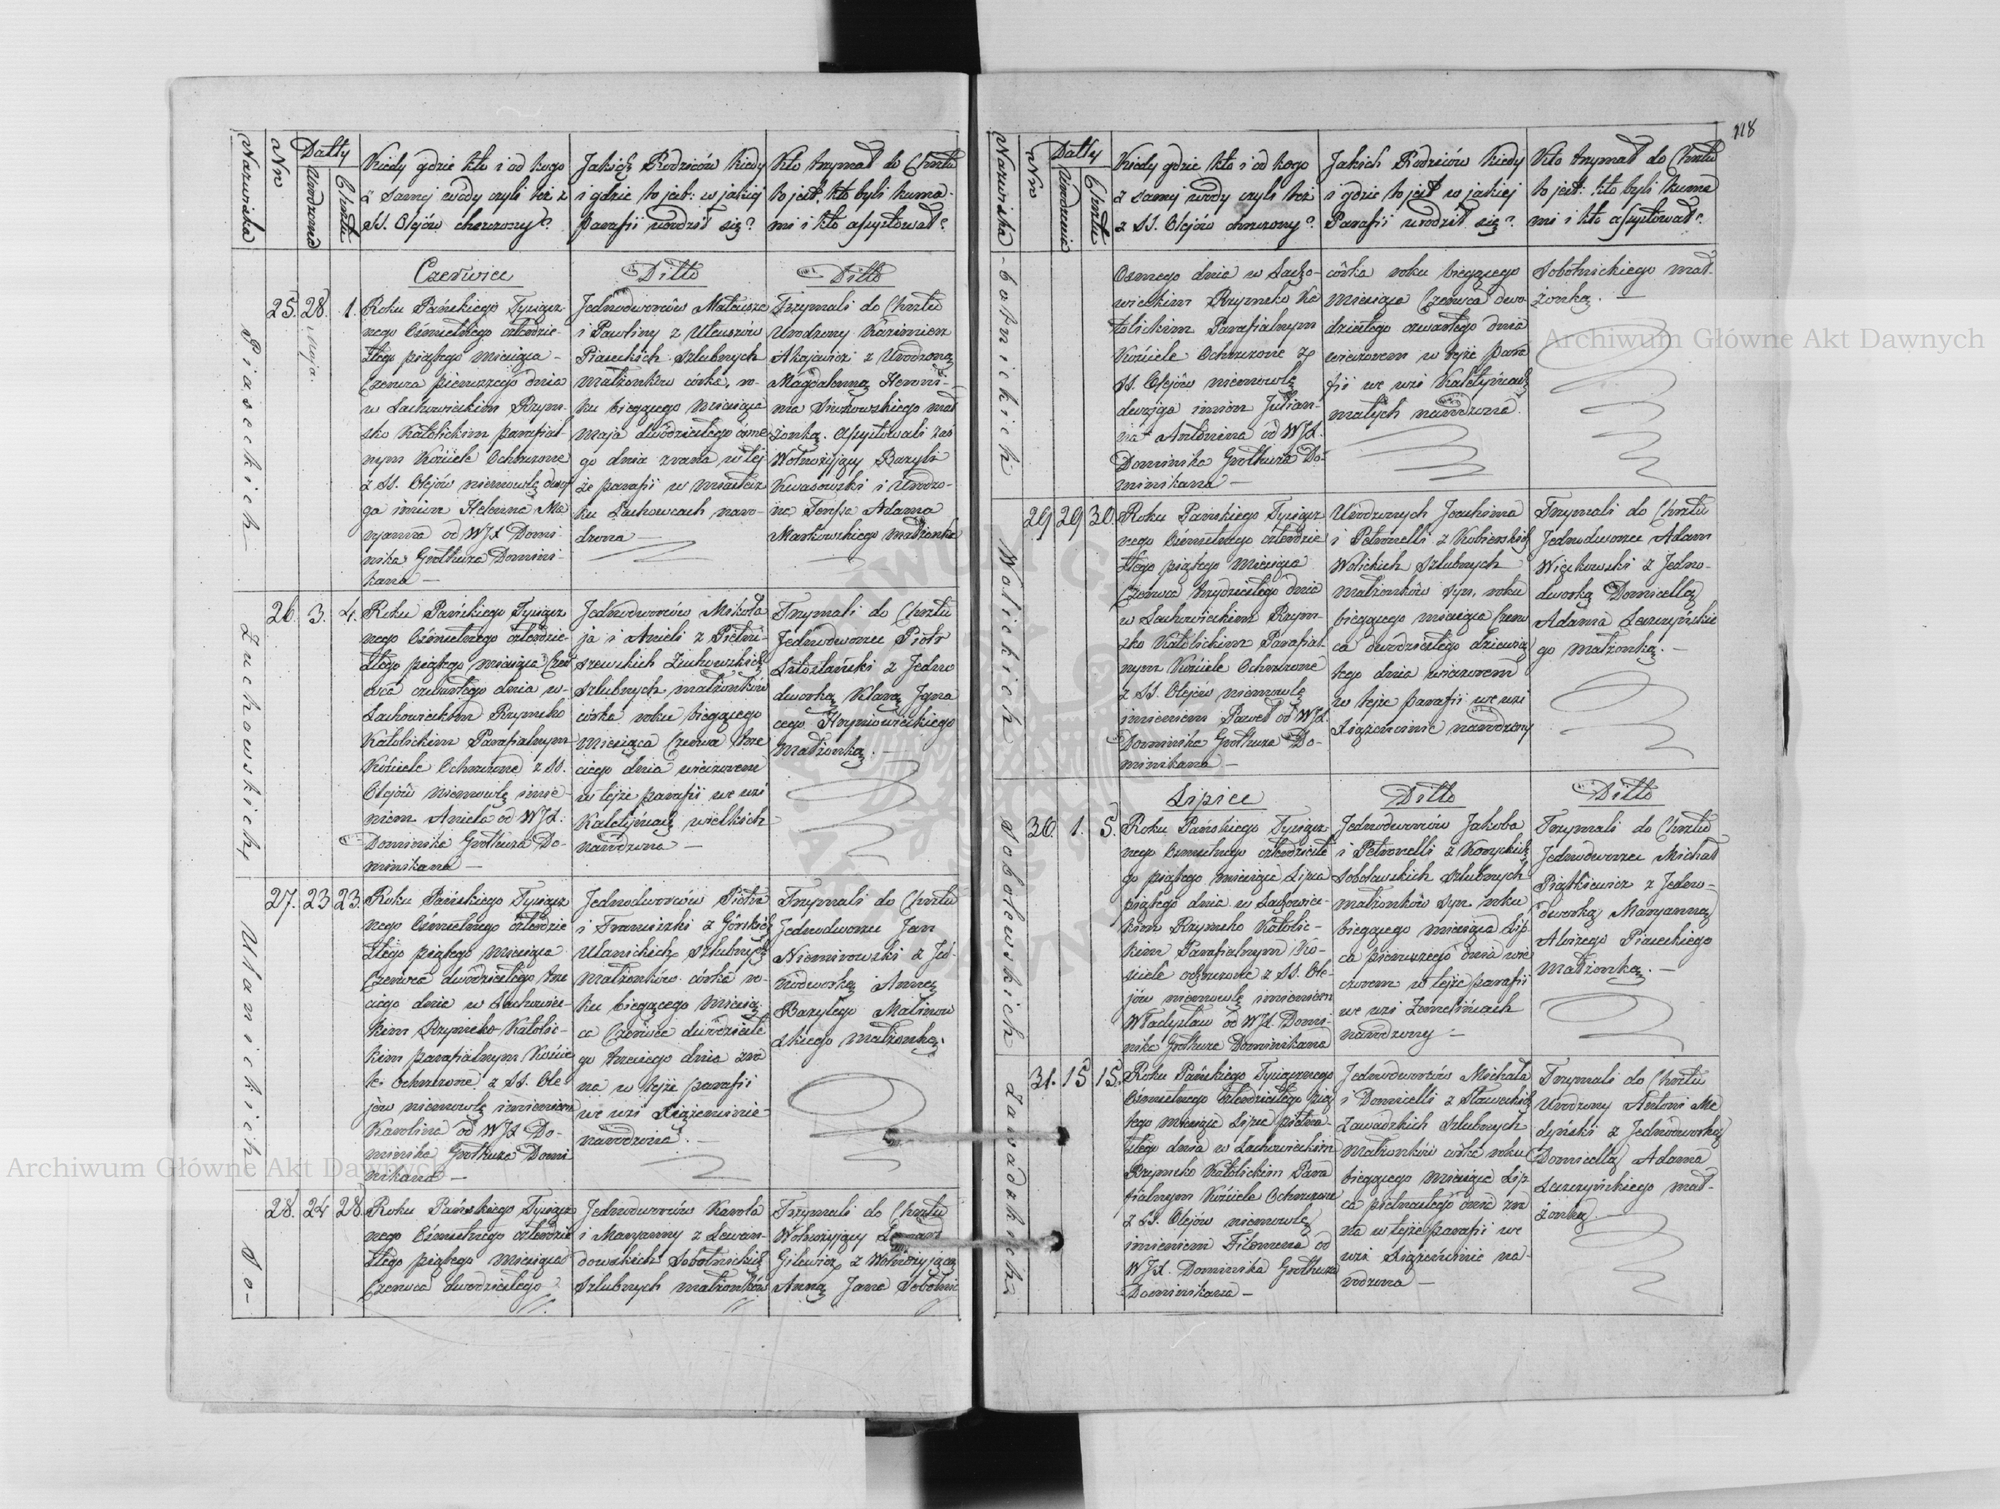 118
Nazwiska
Nro
Datty
Urodzenia
Chrztu
Kiedy gdzie kto i od kogo
z samej wody czyli też z
SS. Olejów chrzczony?
Jakich Rodziców kiedy
i gdzie to jest: w jakiej
Parafii urodził się?
Kto trzymał do Chrztu
to jest: kto byli kuma-
mi i kto assystował?
Piaseckich
25. 28. Maja. 1.
Czerwiec
Roku Pańskiego Tysiącz
nego Ośmsetnego czterdzie
stego piątego miesiąca
Czerwca pierwszego dnia
w Lachowieckim Rzym-
sko Katolickim parafial-
nym Kościele Ochrzczone
z SS. Olejów niemowlę dwoj
ga imion Helenna Ma
ryanna od WJX Domi-
nika Grothuza Domini-
kana —
Ditto
Jednodworców Mateusza
i Pawliny z Utuszów
Piaseckich szlubnych
małżonków córka, ro-
ku bieżącego miesiąca
maja dwódziestego ósme
go dnia zrana w tej
że parafii w miastecz
ku Lachowcach naro-
dzona —
Ditto
Trzymali do Chrztu
Urodzony Kazimierz
Makarewicz z Urodzoną
Magdalenną Heroni-
ma Siurkowskiego mał
żonką. Assystowali zaś
Wolnożyjący Bazyli
Kwasowski i Urodzo-
na Teresa Adama
Markowskiego małżonka
Żuchowskich
26. 3. 4.
Roku Pańskiego Tysiącz
nego Ośmsetnego czterdzie
stego piątego miesiąca Czer
wca czwartego dnia w-
Lachowieckim Rzymsko
Katolickim Parafialnym
Kościele Ochrzczone z SS.
Olejów niemowlę imie-
niem Aniela od WJX.
Dominika Grothuza Do-
minikana —
Jednodworców Mikoła
ja i Anieli z Pietru-
szewskich Żuchowskich
szlubnych małżonków
córka roku bieżącego
miesiąca Czerwca trze
ciego dnia wieczorem
w tejże parafii we wsi
Kaletyńcach wielkich
narodzona —
Trzymali do Chrztu
Jednodworzec Piotr
z Jedno
dworką Klarą Igna
cego Hryniewieckiego
Małżonką. —
Ułanickich
27. 23 23.
Roku Pańskiego Tysiącz
nego Ośmsetnego czterdzie
stego piątego Miesiąca
Czerwca dwódziestego trze
ciego dnia w Lachowiec-
kim Rzymsko Katolic-
kim parafialnym Kości
le Ochrzczone z SS. Ole-
jów niemowlę imieniem
Karolina od WJX Do-
minika Grothuza Domi
nikana —
Jednodworców Piotra
i Franciszki z Górskich
Ułanickich szlubnych
Małżonków córka ro-
ku bieżącego miesią-
ca Czerwca dwódzieste
go trzeciego dnia zra
na w tejże parafii
we wsi
narodzona. —
Trzymali do Chrztu
Jednodworzec Jan
Niemirowski z Jed-
nodworką Anną
Bazylego Malinow
skiego Małżonką.
So-
28. 24 28.
Roku Pańskiego Tysiącz
nego Ośmsetnego czterdzie
stego piątego Miesiąca
Czerwca dwodziestego
Jednodworców Karola
i Maryanny z Lewan-
dowskich Sobotnickich
szlubnych małżonków
Trzymali do Chrztu
Wolnożyjący Leonard
Gilewicz z Wolnożyjącą
Anną Jana Sobotnic
Nazwiska
Nro
Datty
Urodzenia
Chrztu
Kiedy gdzie kto i od kogo
z samej wody czyli też
z SS. Olejów chrzczony?
Jakich Rodziców kiedy
i gdzie to jest w jakiej
Parafii urodził się?
Kto trzymał do Chrztu
to jest: kto byli kuma
mi i kto assystował?
botnickich
Osmego dnia w Lacho-
wieckim Rzymsko Ka
tolickim Parafialnym
Kościele Ochrzczone z
SS. Olejów niemowlę
dwojga imion Julian-
na Antonina od WJX.
Dominika Grothuza Do-
minikana —
córka roku bieżącego
Miesiąca Czerwca dwo-
dziestego czwartego dnia
wieczorem w tejże para
fii we wsi Kaletyńcach
małych narodzona.
Sobotnickiego mał-
żonką. —
Wolickich
29 29 30.
Roku Pańskiego Tysiącz
nego Ośmsetnego czterdzie
stego piątego Miesiąca
Czerwca trzydziestego dnia
w Lachowieckim Rzym-
sko Katolickim Parafial-
nym Kościele Ochrzczone
z SS. Olejów niemowlę
imieniem Paweł od WJX.
Dominika Grothuza Do-
minikana —
Urodzonych Joachima
i Petronelli z Kobierskich
Wolickich szlubnych
małżonków syn, roku
bieżącego miesiąca Czerw
ca dwódziestego dziewią
tego dnia wieczorem
w tejże parafii we wsi
narodzony
Trzymali do Chrztu
Jednodworzec Adam
Więckowski z Jedno-
dworką Domicellą
Adama Saczyńskie
go małżonką. —
Sobolewskich
30. 1. 5.
Lipiec
Roku Pańskiego Tysiącz
nego Ośmsetnego czterdzieste
go piątego miesiąca Lipca
piątego dnia w Lachowiec-
kim Rzymsko Katolic-
kim Parafialnym Ko-
ściele ochrzczone z SS. Ole-
jów niemowlę imieniem
Władysław od WJX Domi-
nika Grothuza Dominikana
Ditto
Jednodworców Jakoba
i Petronelli z
Sobolewskich szlubnych
małżonków syn roku
bieżącego miesiąca Lip-
ca pierwszego dnia wie
czorem w tejże parafii
we wsi
narodzony —
Ditto
Trzymali do Chrztu
Jednodworzec Michał
Piątkiewicz z Jedno-
dworką Maryanną
Piaseckiego
Małżonką. —
Zawadzkich
31. 15 15.
Roku Pańskiego Tysiącznego
Ośmsetnego Czterdziestego pią
tego miesiąca Lipca piętna-
stego dnia w Lachowieckim
Rzymsko Katolickim Para
fialnym Kościele Ochrzczone
z SS. Olejów niemowlę
imieniem Filomena od
WJX. Dominika Grothuza
Dominikana —
Jednodworców Michała
i Domicelli z Sławeckich
Zawadzkich szlubnych
Małżonków córka roku
bieżącego miesiąca Lip
ca piętnastego dnia zra
na w tejże parafii we
wsi na-
rodzona —
Trzymali do Chrztu
Urodzony Antoni Me
dyński z Jednodworką
Domicellą Adama
Saczyńskiego mał-
żonką.
Archiwum Główne Akt Dawnych
Archiwum Główne Akt Dawnych